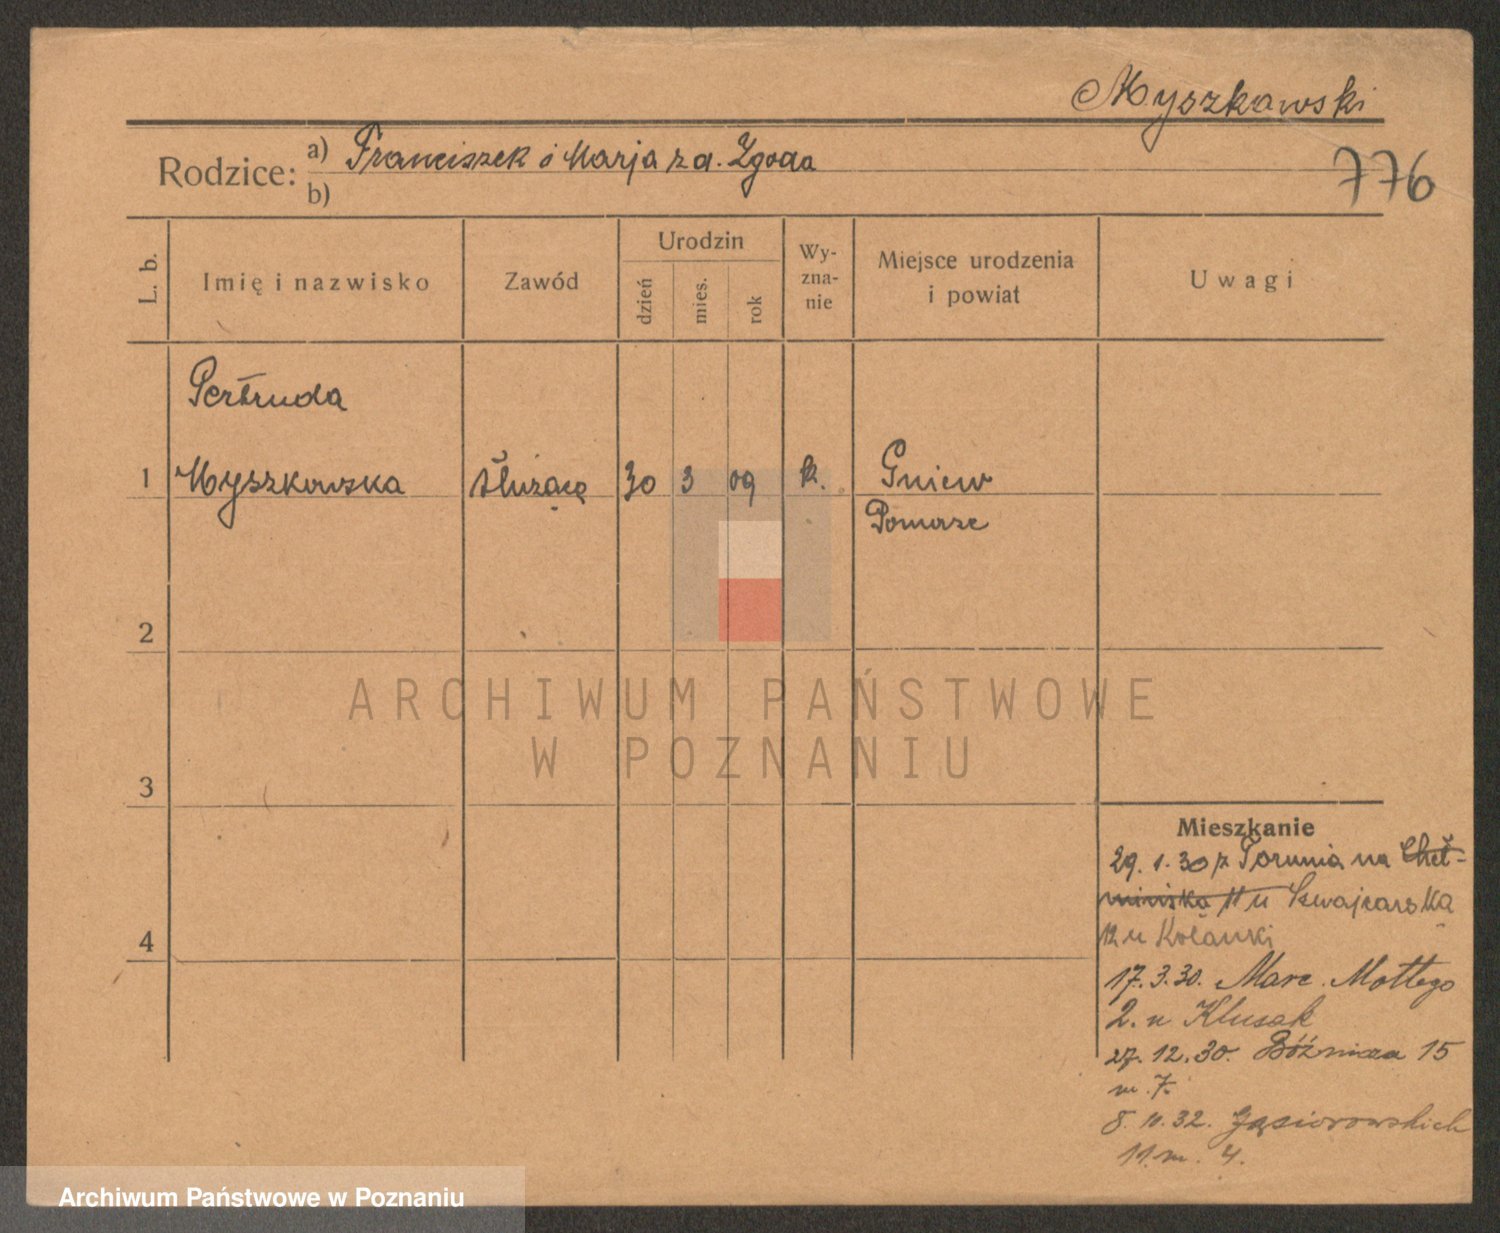 Myszkawski
Rodzice: a) Franciszek i Marja z d. Zgoda
b)
776
L. b.
Imię i nazwisko
Zawód
Urodzin
dzień
mies.
rok
Wy-
zna-
nie
Miejsce urodzenia
i powiat
Uwagi
Gertruda
1 Myszkowska służącą 30 3 09 k. Gniew
Pomorze
2
3
4
Mieszkanie
29. 1. 30 z Torunia na Cheł-
mińska 11 u Szwajcarska
12 u Kolanski
17. 3. 30. Marc. Mottego
2. u Klusak
27. 12. 30. Bóźnicza 15
m. 7.
8. 11. 32. Gąsiorowskich
11. m. 4.
ARCHIWUM PAŃSTWOWE
W POZNANIU
Archiwum Państwowe w Poznaniu